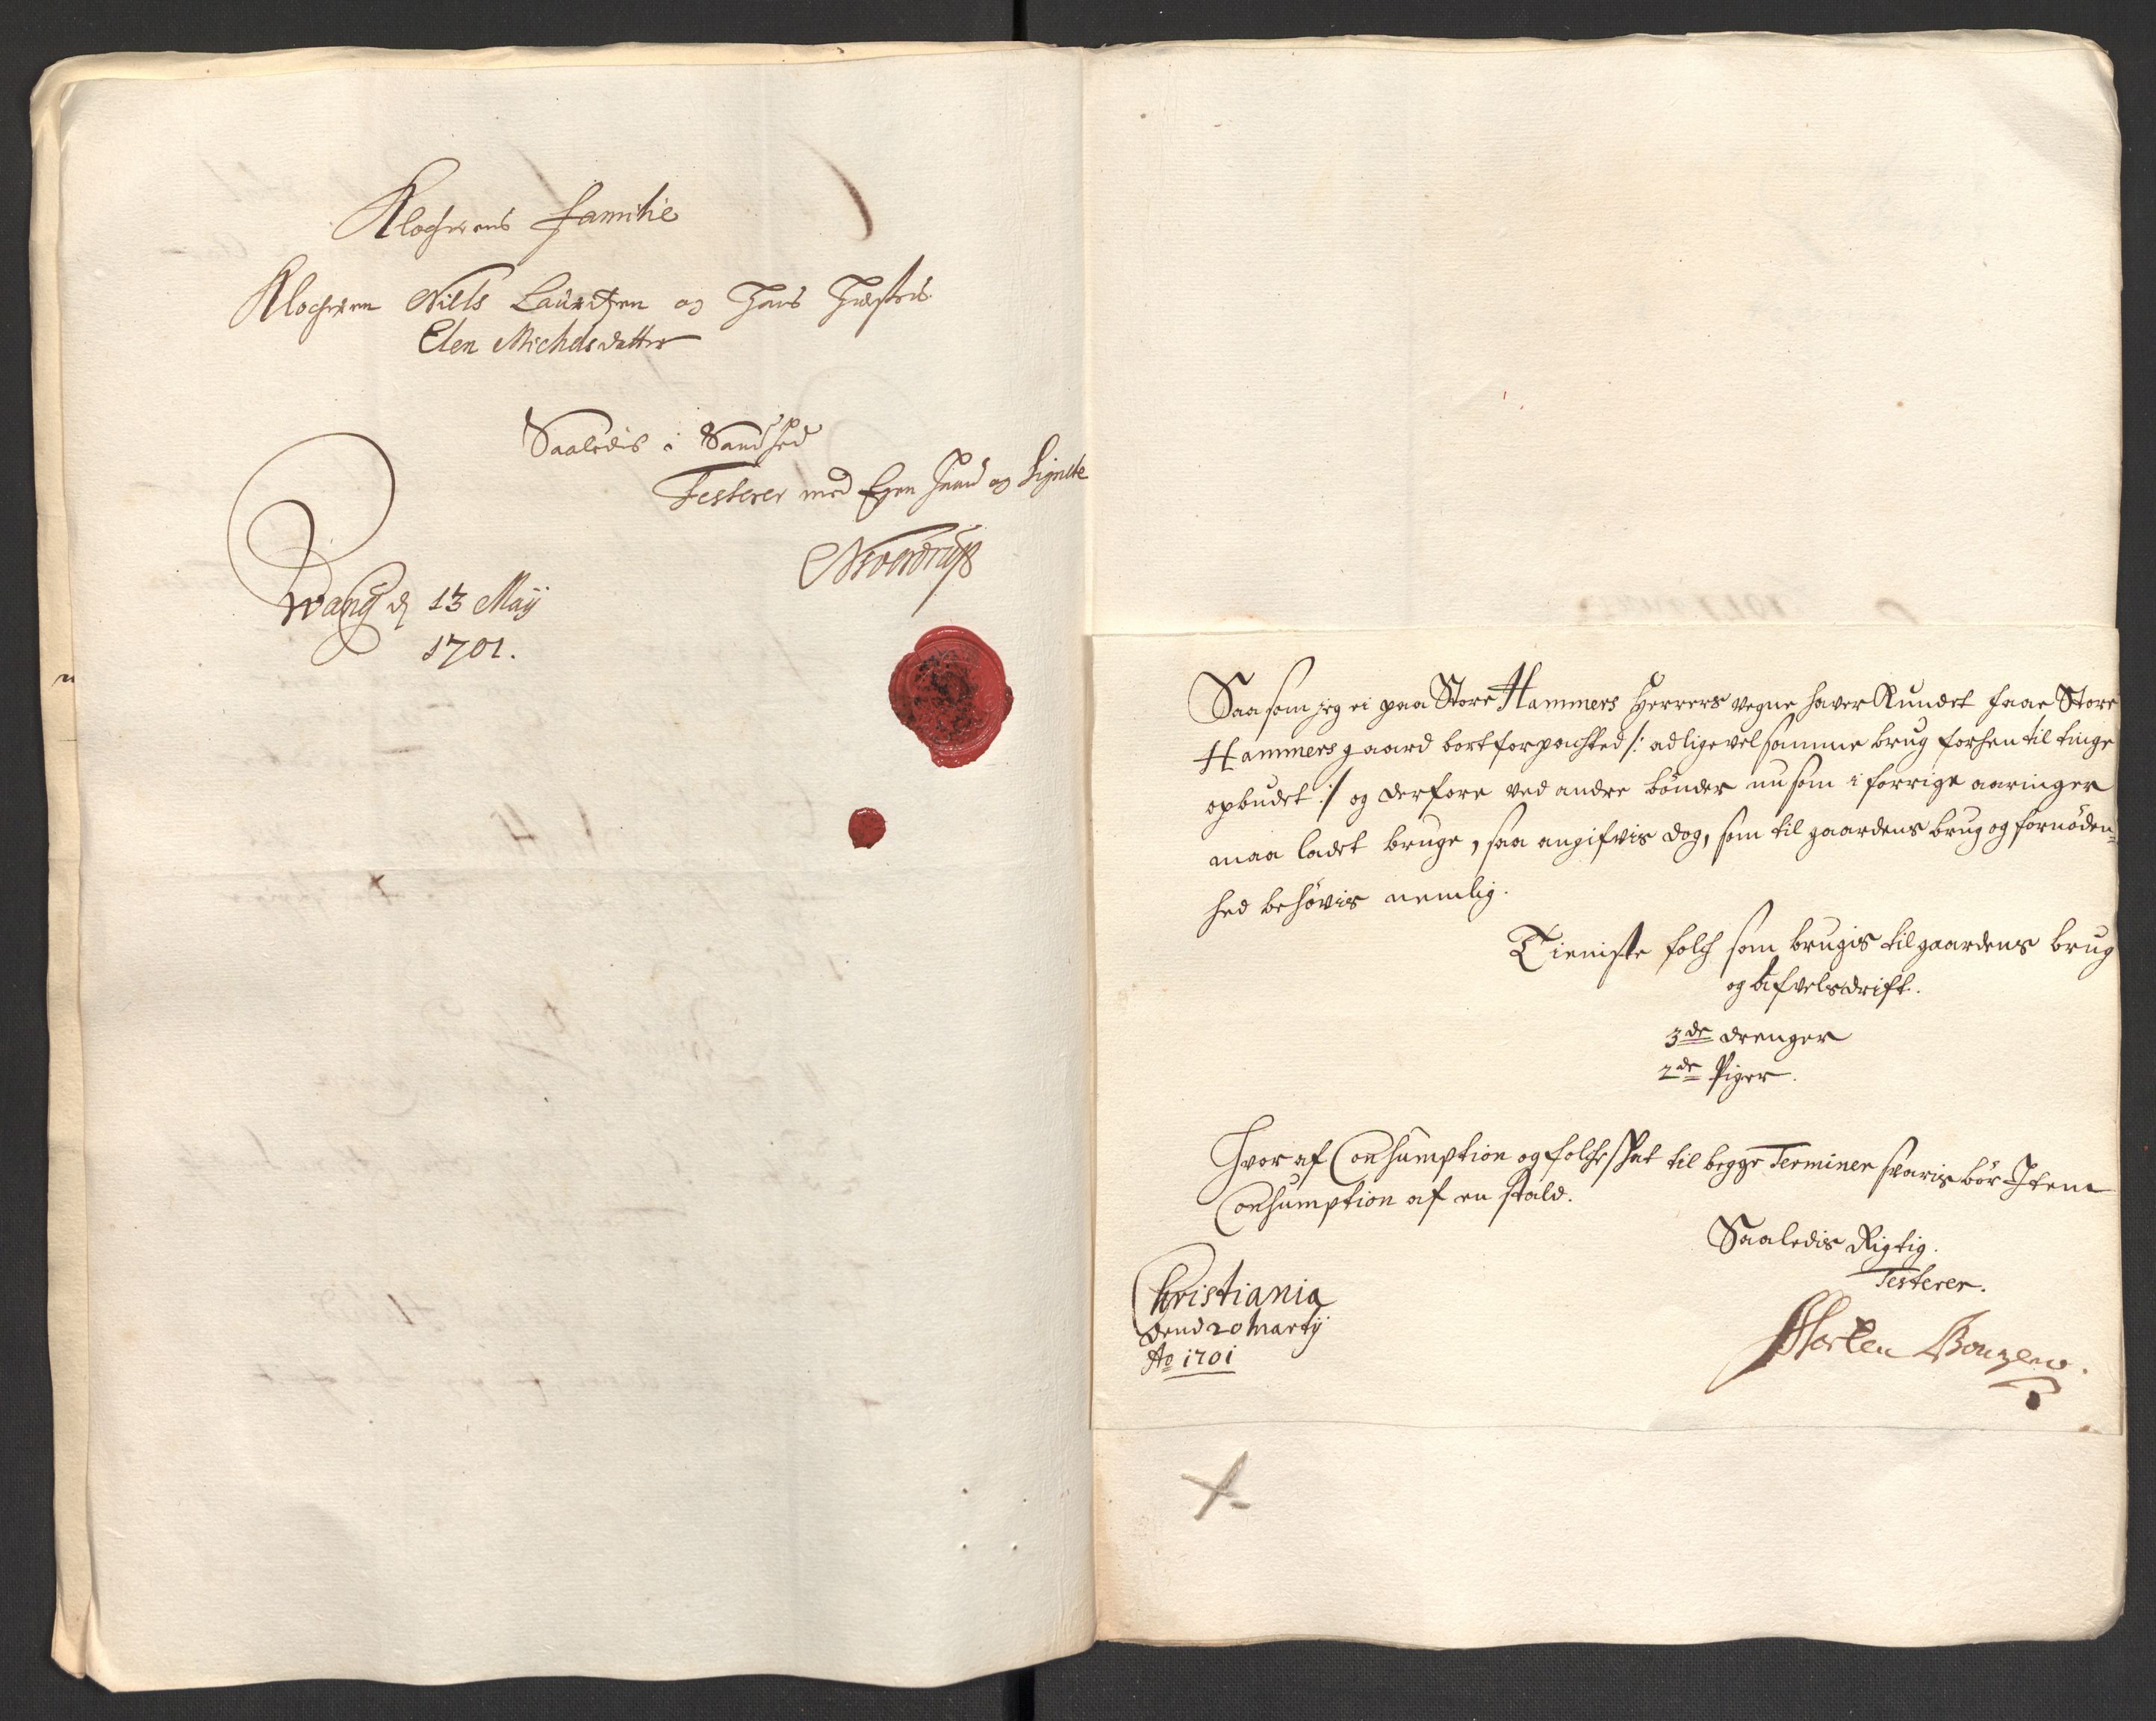 Klocherens familie
Klocheren Niells Lauritzen og Hans Hustrue
Elen Michelsdatter
Saaledis i Sandhed
Testerer med Egen Haand og Signete
Wang d 13 Maij
1701.
Saasom jeg ei paa Store Hammers Herrers vegne haver Kundet faae Store
Hammers gaard bortforpachted /: adligevel samme brug forhen til tinge
opbudet :/ og derfore ved andre bönder nu som i forrige aaringer
maa ladet bruge, saa angifvis dog, som til gaardens brug og fornöden=
hed behövis nemlig.
Tieniste folch som brugis til gaardens brug
og afvelsdrift.
3de drenger
2de Piger.
Hvoraf Consumption og folcheskat til begge Terminer svaris bör Item
Consumption af en stald.
Saaledis Rigtig.
Testerer.
Christiania
dend 20 Martij
Ao 1701
Morten